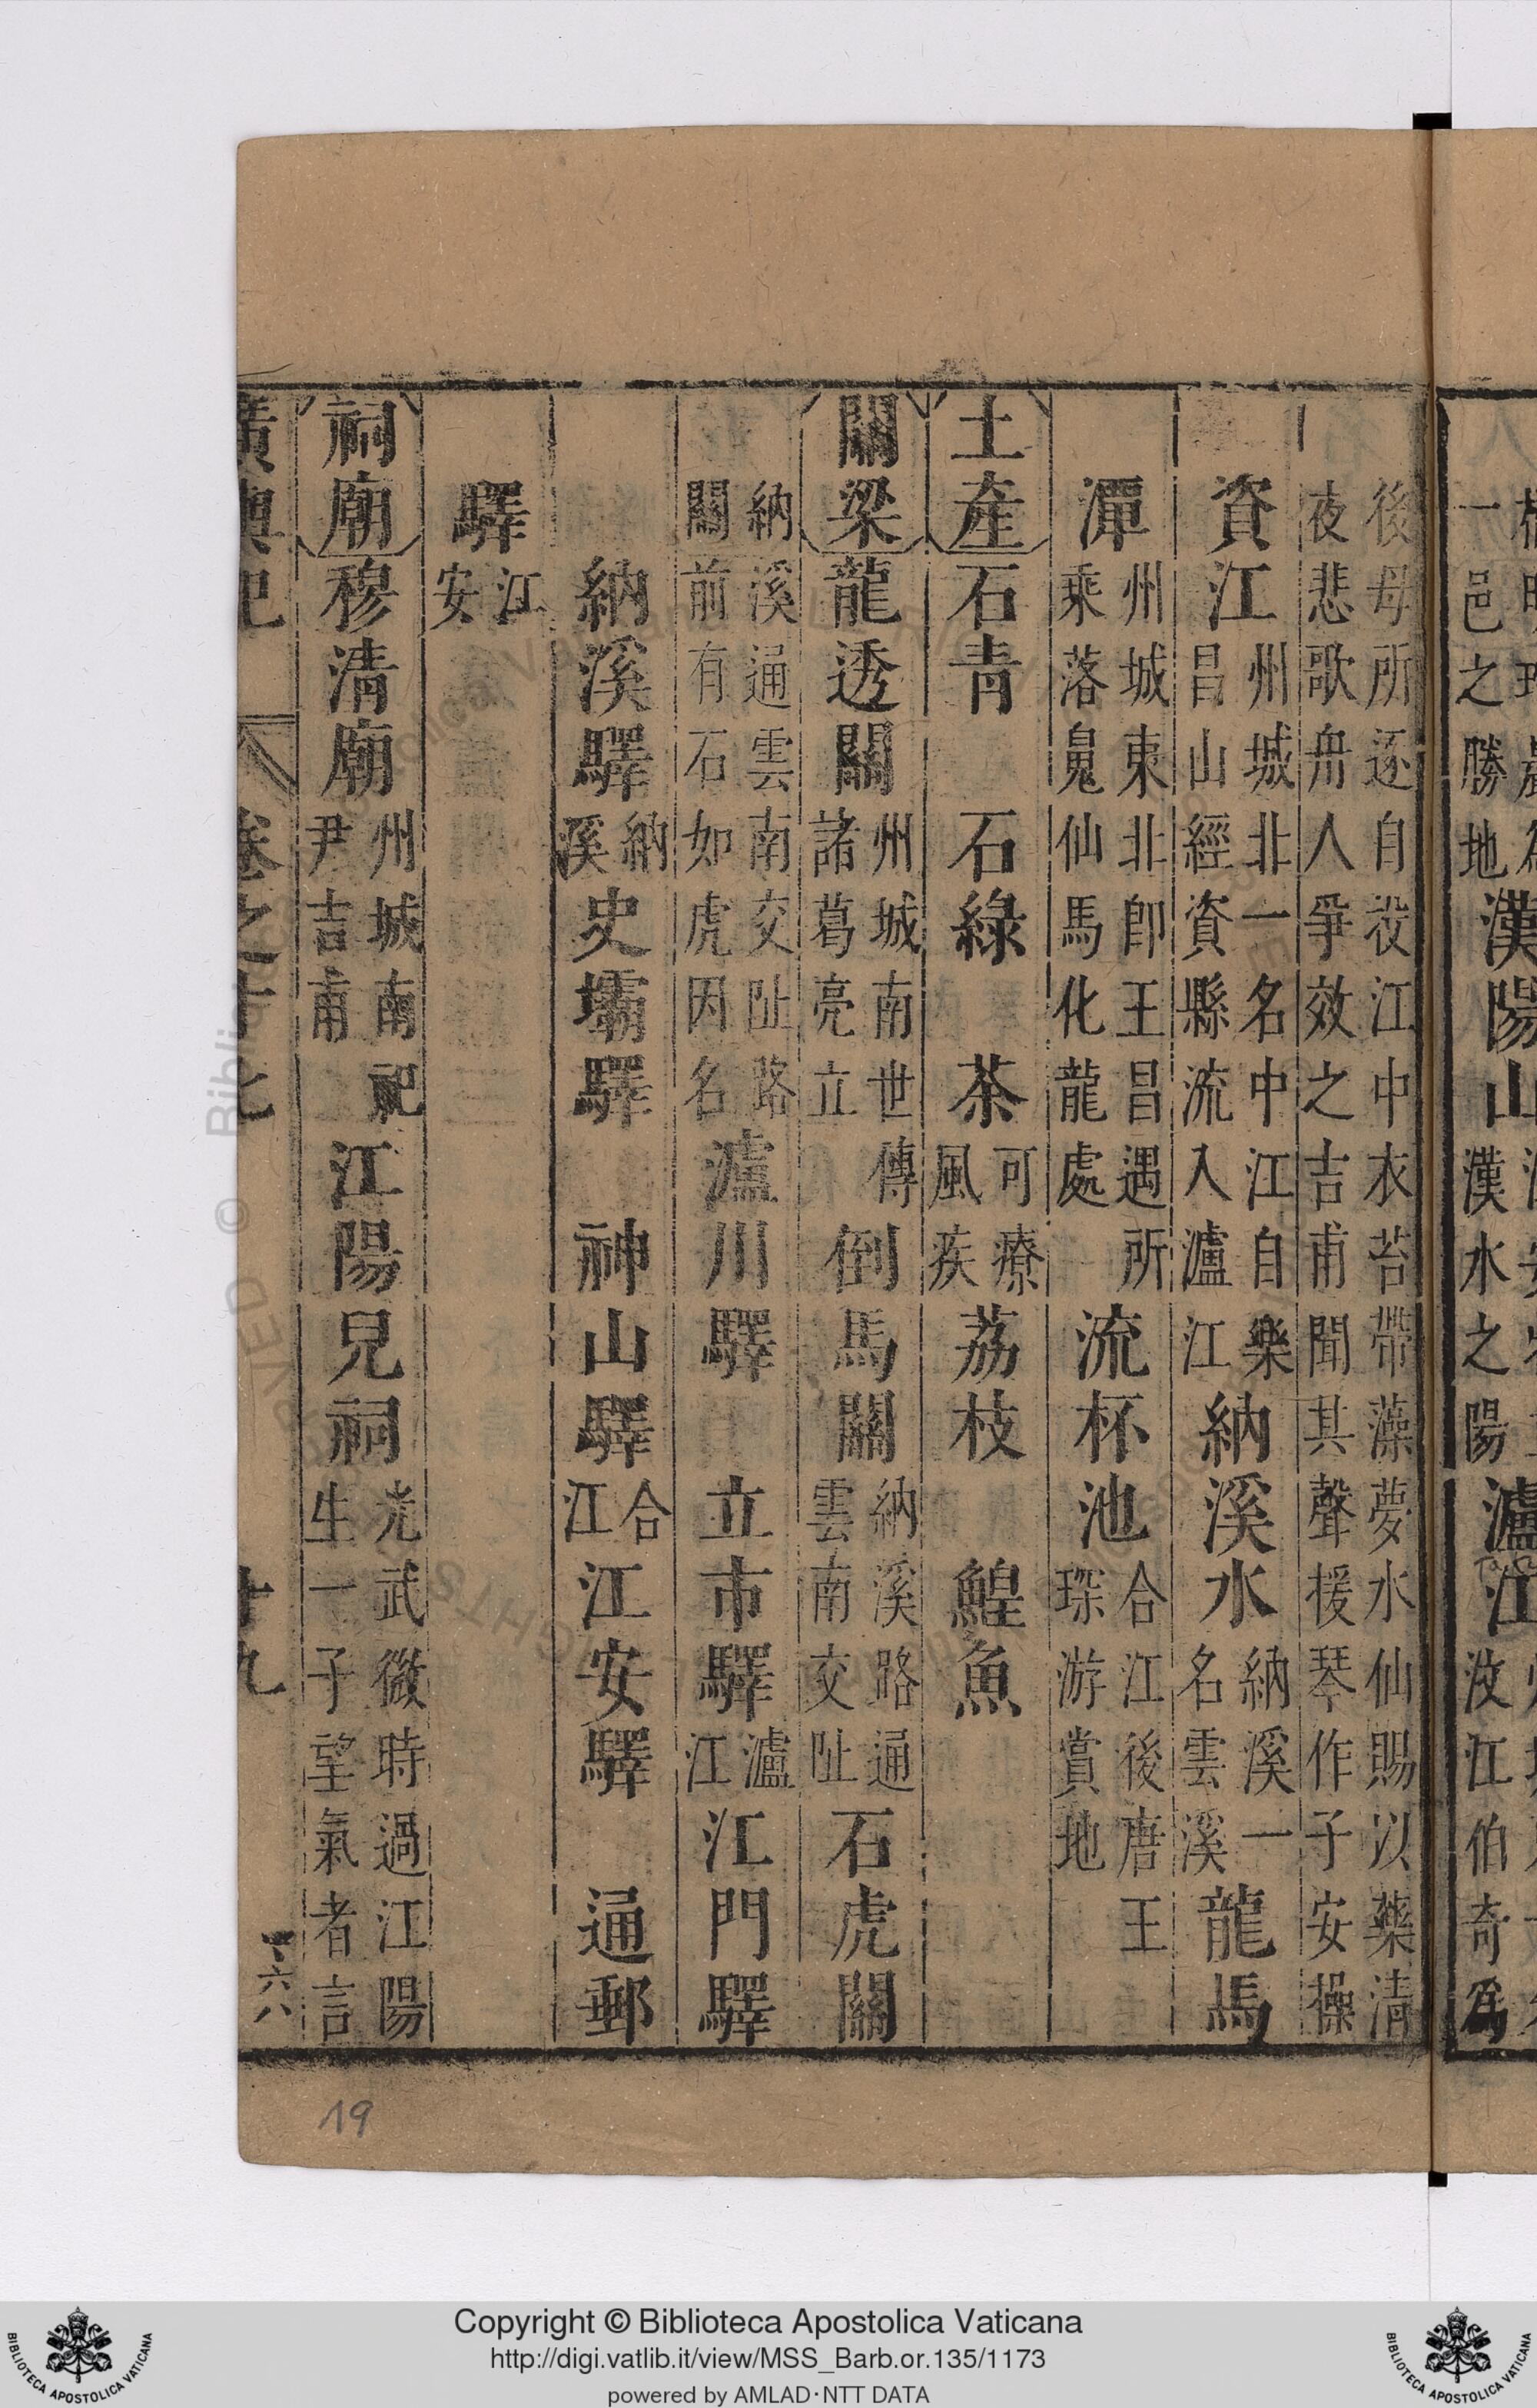 一邑之勝地 漢陽山 漢水之陽 瀘江 汝江伯奇爲
後母所逐自投江中衣苔帶藻夢水仙賜以藥清
夜悲歌舟人爭效之吉甫聞其聲援琴作子安操
資江 州城北一名中江自樂
昌山經資縣流入瀘江 納溪水 納溪一
名雲溪 龍馬
潭 州城東北卽王昌遇所
乘落魄仙馬化龍處 流杯池 合江後唐王
琛游賞地
土產 石青 石綠 茶 可療
風疾 荔枝 鰉魚
關梁 龍透關 州城南世傳
諸葛亮立 倒馬關 納溪路通
雲南交阯 石虎關
納溪通雲南交阯路
關前有石如虎因名 瀘川驛 立市驛 瀘
江 江門驛
納溪驛 納
溪 史壩驛 神山驛 合
江 江安驛 通郵
驛 江
安
祠廟 穆清廟 州城南祀
尹吉甫 江陽兒祠 光武微時過江陽
生一子望氣者言
廣輿記 卷之十七 十九
六八
19
Copyright © Biblioteca Apostolica Vaticana
http://digi.vatlib.it/view/MSS_Barb.or.135/1173
powered by AMLAD·NTT DATA
BIBLIOTECA APOSTOLICA VATICANA
BIBLIOTECA APOSTOLICA VATICANA